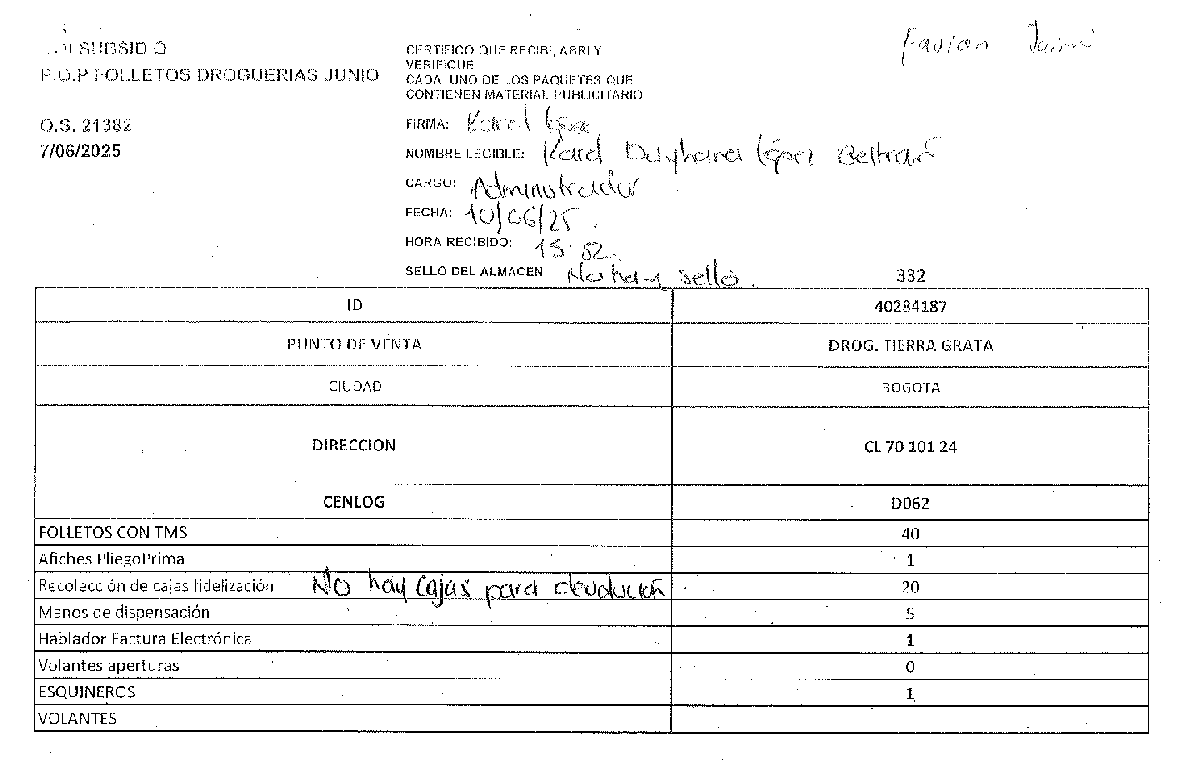 COLSUBSIDIO
P.O.P FOLLETOS DROGUERIAS JUNIO
O.S. 21382
7/06/2025
CERTIFICO QUE RECIBI, ABRI Y
VERIFIQUE
CADA UNO DE LOS PAQUETES QUE
CONTIENEN MATERIAL PUBLICITARIO
FIRMA: Karol López
NOMBRE LEGIBLE: Karol López Beltrán
CARGO: Administrador
FECHA: 10/06/25.
HORA RECIBIDO:
SELLO DEL ALMACEN No hay sello.
332
ID 40284187
PUNTO DE VENTA DROG. TIERRA GRATA
CIUDAD BOGOTA
DIRECCION CL 70 101 24
CENLOG D062
FOLLETOS CON TMS 40
Afiches PliegoPrima 1
Recolección de cajas fidelización No hay cajas para devolución 20
Manos de dispensación 5
Hablador Factura Electrónica 1
Volantes aperturas 0
ESQUINEROS 1
VOLANTES